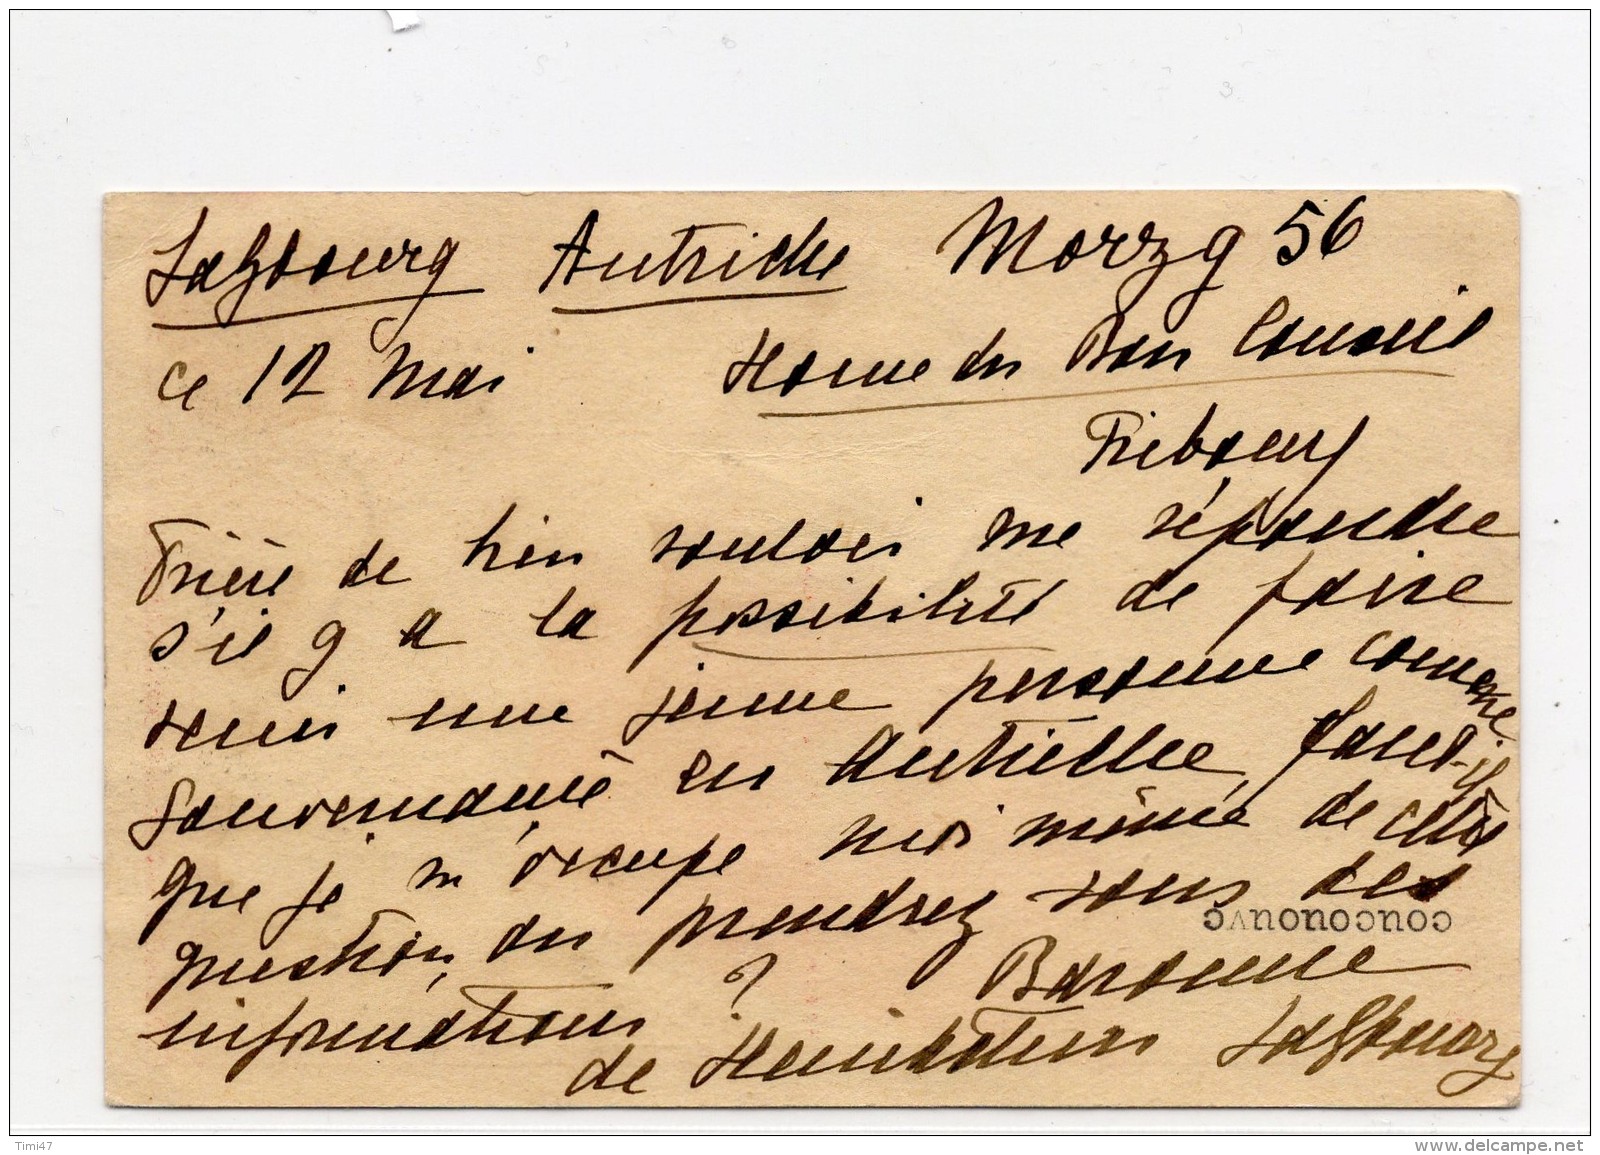 Salzbourg Autriche Morzg 56
ce 12 Mai Home du Bon Conseil
Fribourg
Prière de bien vouloir me répondre
s'il y a la possibilité de faire
venir une jeune personne comme
gouvernante en Autriche, faut-il
que je m'occupe moi même de cette
question, ou prendrez vous des
informations ? Baronne
de Salzbourg
coucououvc
Timi47
www.delcampe.net